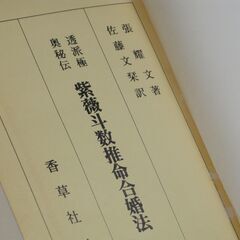 張耀文著
佐藤文栞訳
透派極奥秘伝
紫薇斗数推命合婚法
香草社